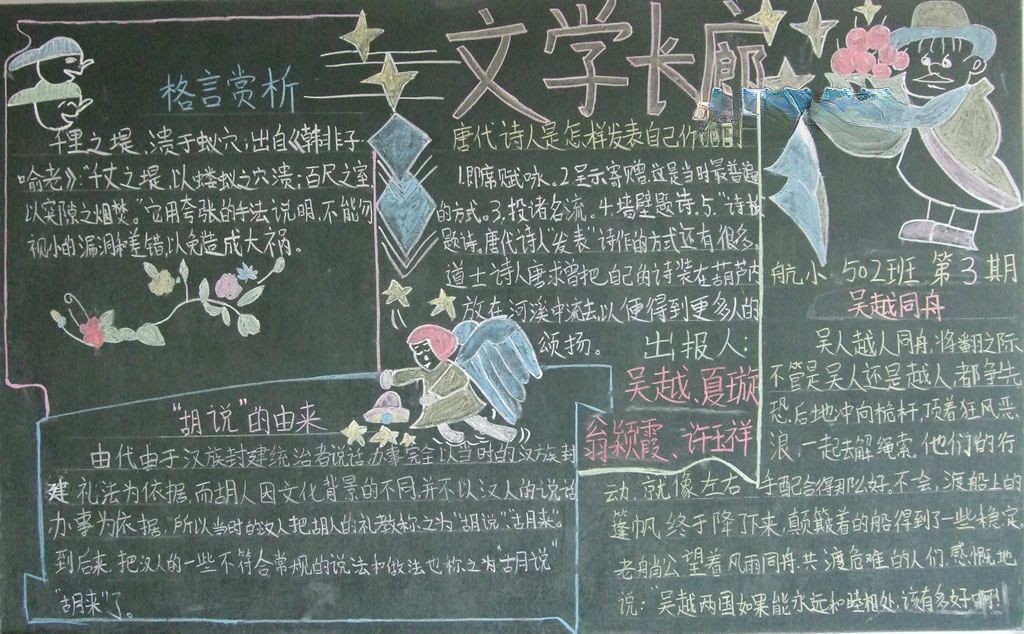 文学长廊
格言赏析
千里之堤,溃于蚁穴;出自《韩非子·
喻老》:"千丈之堤,以蝼蚁之穴溃;百尺之室
以突隙之烟焚。"它用夸张的手法说明,不能忽
视小的漏洞和差错,以免造成大祸。
唐代诗人是怎样发表自己作品的
1.即席赋咏。2.呈示寄赠,这是当时最普遍
的方式。3.投诸名流。4.墙壁题诗。5."诗板"
题诗。唐代诗人"发表"诗作的方式还有很多。
道士诗人唐求曾把自己的诗装在葫芦内
放在河溪中流去,以便得到更多人的
颂扬。
出报人:
吴越、夏璇
翁颖霞、许玉祥
"胡说"的由来
由代由于汉族封建统治者说话、办事完全以当时的汉族封
建礼法为依据,而胡人因文化背景的不同,并不以汉人的说话
办事为依据,所以当时的汉人把胡人的礼教称之为"胡说""胡来"。
到后来,把汉人的一些不符合常规的说法和做法也称之为"胡说"
"胡来"了。
航小502班第3期
吴越同舟
吴人越人同舟,将翻之际
不管是吴人还是越人,都争先
恐后地冲向桅杆,顶着狂风恶
浪,一起去解绳索。他们的行
动,就像左右手配合得那么好。不会,渡船上的
篷帆终于降下来,颠簸着的船得到了一些稳定,
老艄公望着风雨同舟、共渡危难的人们,感慨地
说:"吴越两国如果能永远和睦相处,该有多好啊!